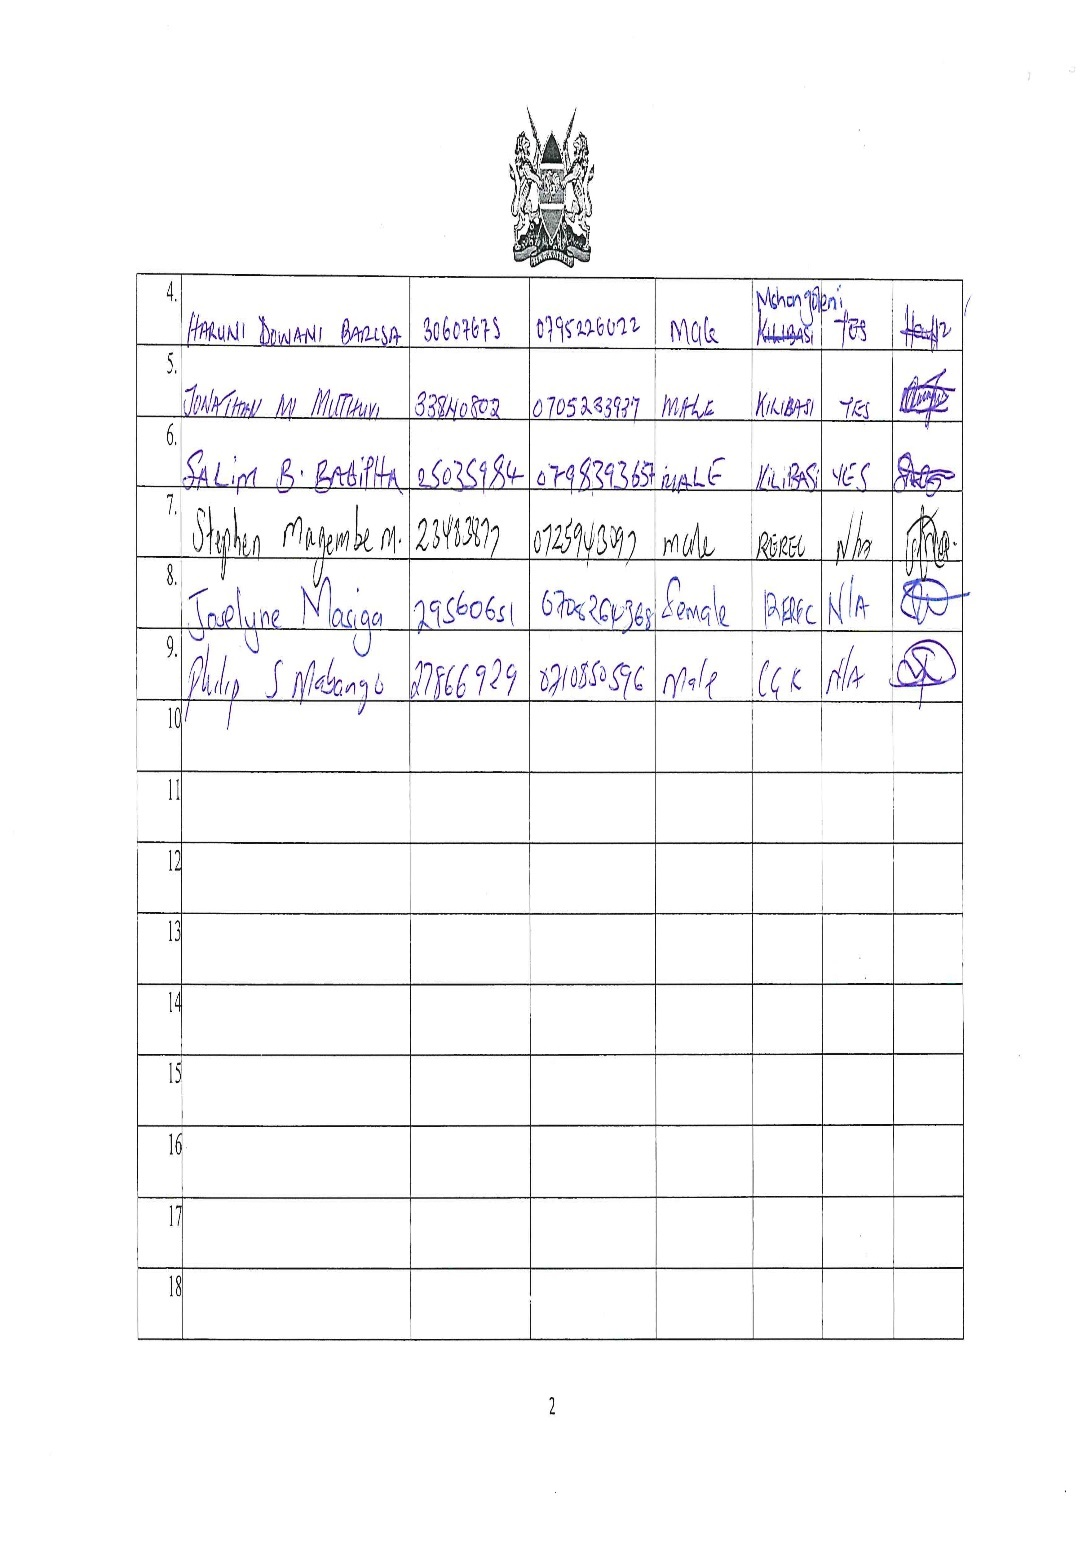 4. Mshongoleni
HARUNI DOWANI BARISA 30607675 0795226022 Male KILIBASI YES
5.
JONATHAN M MUTHUVI 33840802 0705233937 MALE KILIBASI YES
6.
SALIM B. BABIPHA 25035984 0798393657 MALE KILIBASI YES
7.
Stephen Magembe M. 23483877 0725943097 male REREC N/A
8.
Joselyne Masiga 29560651 0708264368 Female REREC N/A
9.
Philip S Mabango 27866929 0710850596 Male CGK N/A
10
11
12
13
14
15
16
17
18
2